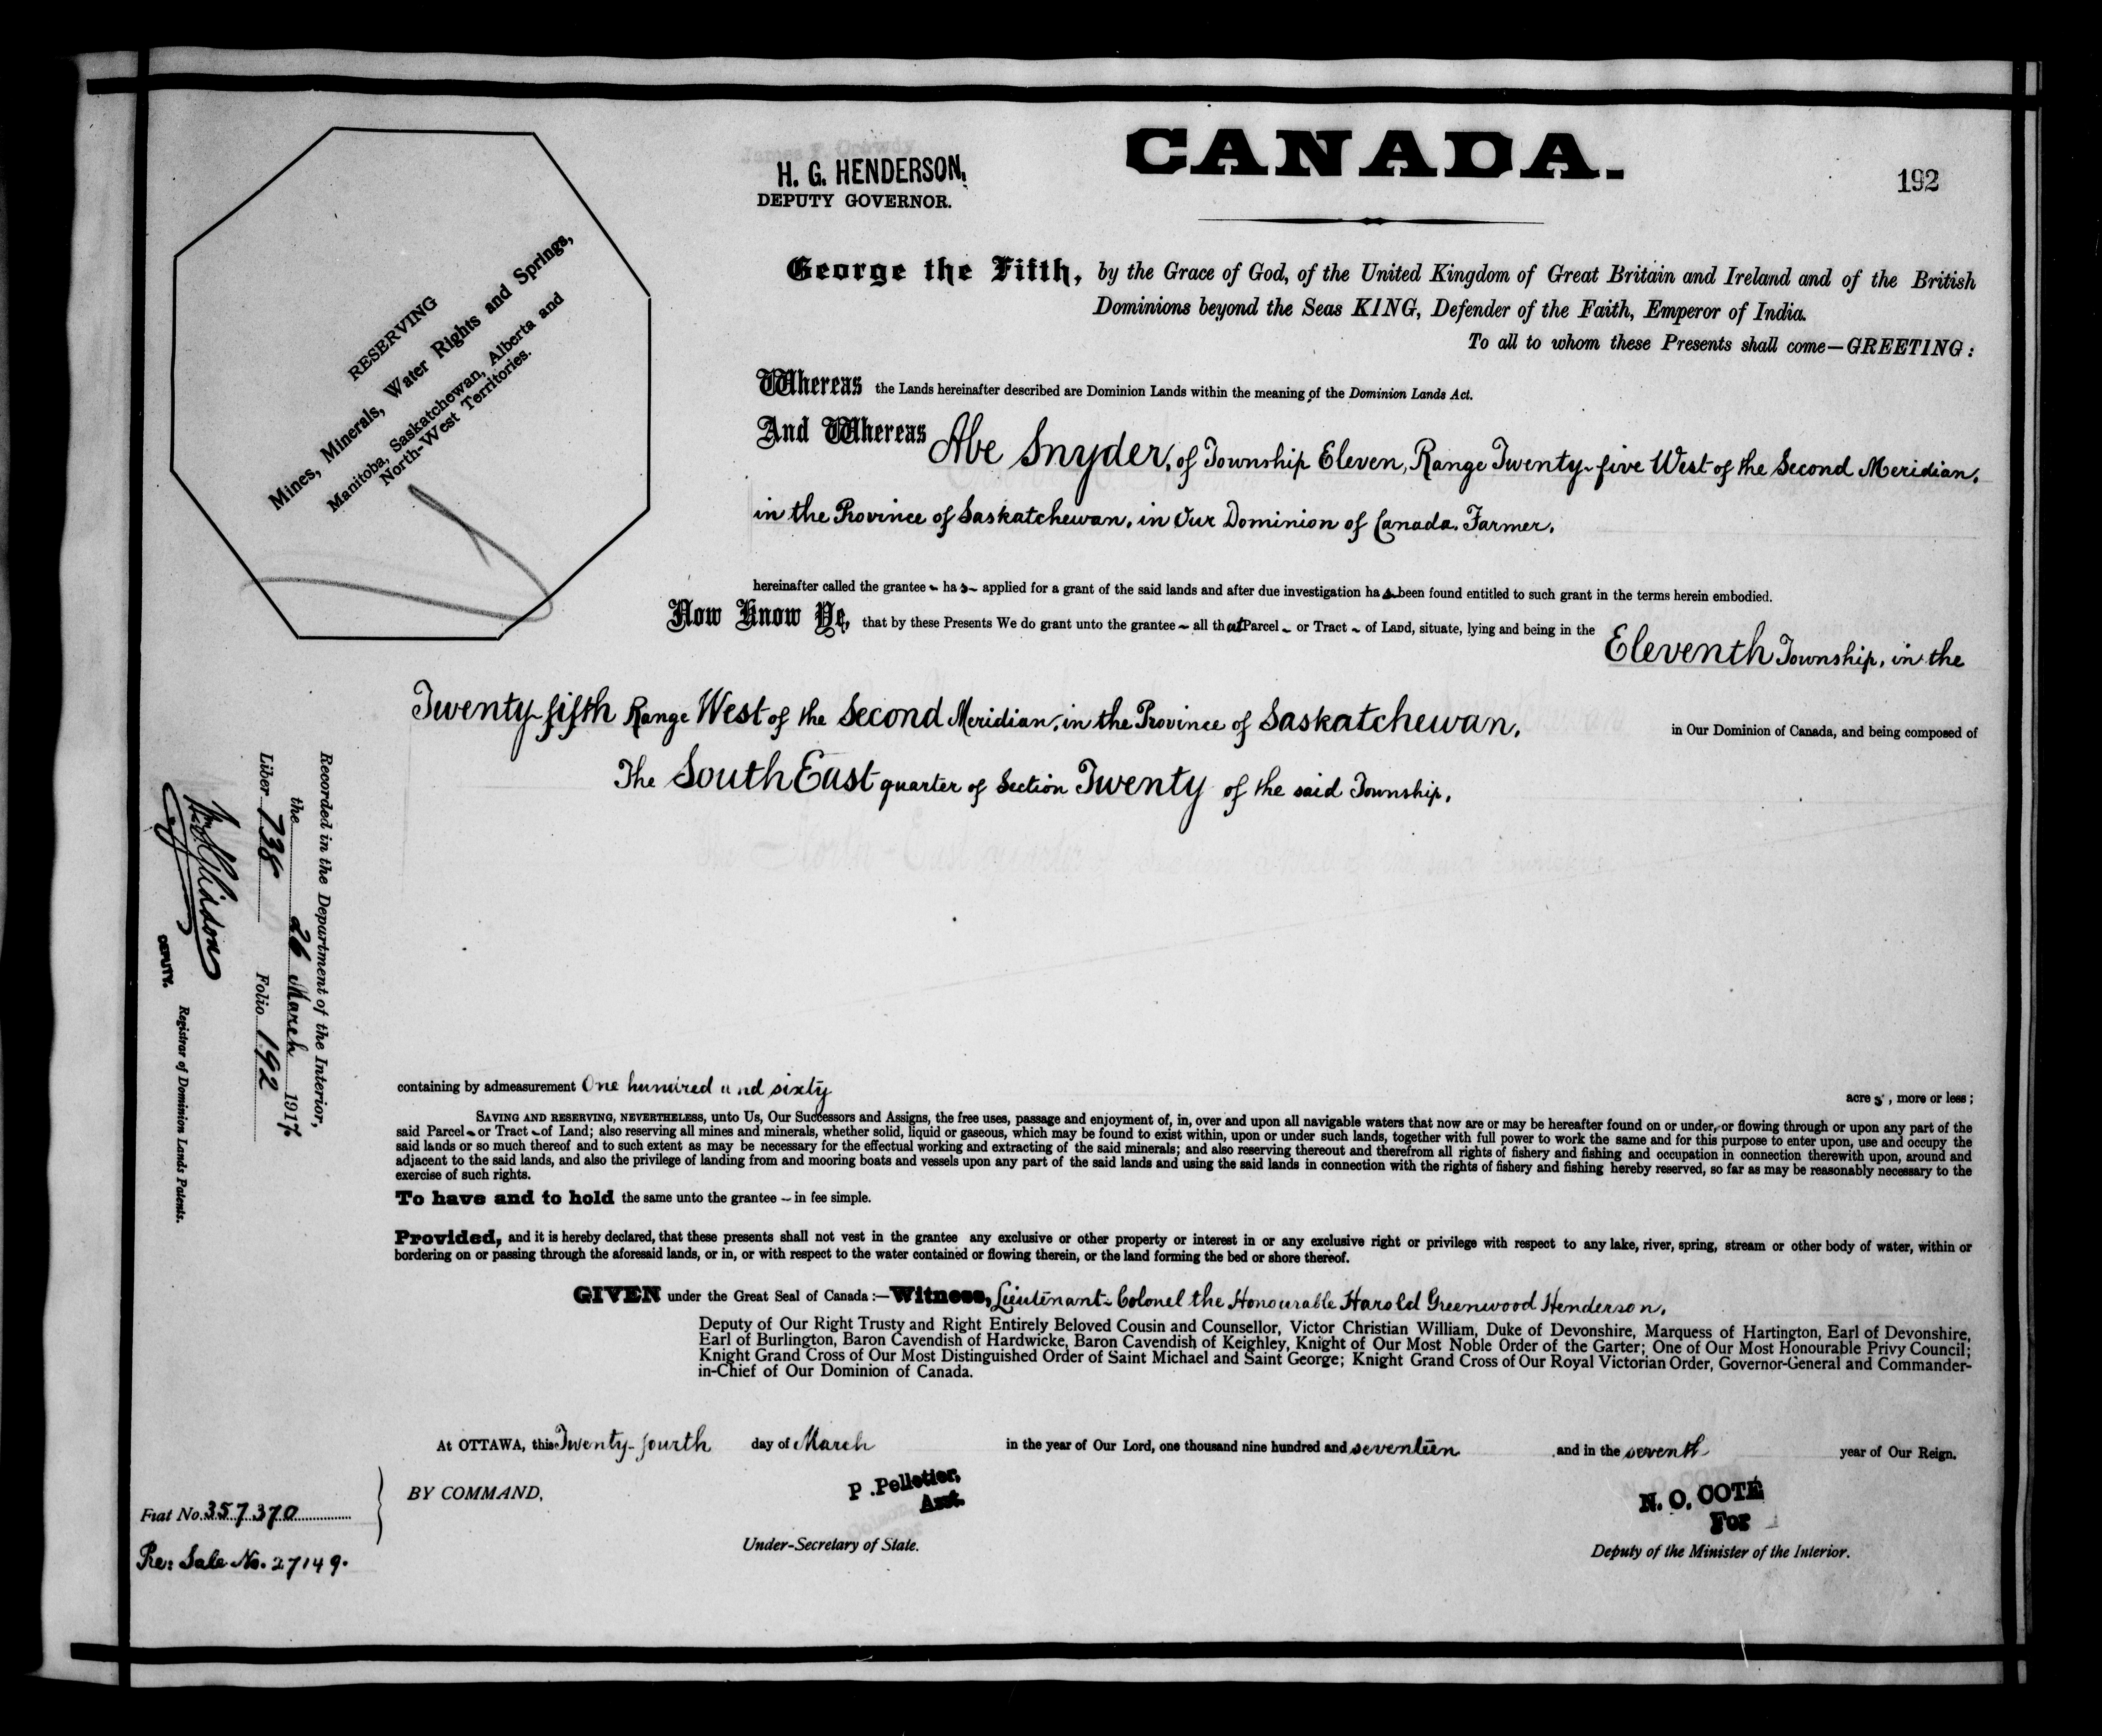 CANADA.
H. G. HENDERSON,
DEPUTY GOVERNOR.
192
RESERVING
Mines, Minerals, Water Rights and Springs,
Manitoba, Saskatchewan, Alberta and
North-West Territories.
George the Fifth, by the Grace of God, of the United Kingdom of Great Britain and Ireland and of the British
Dominions beyond the Seas KING, Defender of the Faith, Emperor of India.
To all to whom these Presents shall come—GREETING:
Whereas the Lands hereinafter described are Dominion Lands within the meaning of the Dominion Lands Act.
And Whereas Abe Snyder, of Township Eleven, Range Twenty-five West of the Second Meridian,
in the Province of Saskatchewan, in Our Dominion of Canada, Farmer,
hereinafter called the grantee - has - applied for a grant of the said lands and after due investigation has been found entitled to such grant in the terms herein embodied.
Now Know Ye, that by these Presents We do grant unto the grantee - all that Parcel - or Tract - of Land, situate, lying and being in the Eleventh Township, in the
Twenty-fifth Range West of the Second Meridian, in the Province of Saskatchewan, in Our Dominion of Canada, and being composed of
The South East quarter of Section Twenty of the said Township,
containing by admeasurement One hundred and sixty acres, more or less;
SAVING AND RESERVING, NEVERTHELESS, unto Us, Our Successors and Assigns, the free uses, passage and enjoyment of, in, over and upon all navigable waters that now are or may be hereafter found on or under, or flowing through or upon any part of the
said Parcel - or Tract - of Land; also reserving all mines and minerals, whether solid, liquid or gaseous, which may be found to exist within, upon or under such lands, together with full power to work the same and for this purpose to enter upon, use and occupy the
said lands or so much thereof and to such extent as may be necessary for the effectual working and extracting of the said minerals; and also reserving thereout and therefrom all rights of fishery and fishing and occupation in connection therewith upon, around and
adjacent to the said lands, and also the privilege of landing from and mooring boats and vessels upon any part of the said lands and using the said lands in connection with the rights of fishery and fishing hereby reserved, so far as may be reasonably necessary to the
exercise of such rights.
To have and to hold the same unto the grantee - in fee simple.
Provided, and it is hereby declared, that these presents shall not vest in the grantee any exclusive or other property or interest in or any exclusive right or privilege with respect to any lake, river, spring, stream or other body of water, within or
bordering on or passing through the aforesaid lands, or in, or with respect to the water contained or flowing therein, or the land forming the bed or shore thereof.
GIVEN under the Great Seal of Canada:—Witness, Lieutenant-Colonel the Honourable Harold Greenwood Henderson,
Deputy of Our Right Trusty and Right Entirely Beloved Cousin and Counsellor, Victor Christian William, Duke of Devonshire, Marquess of Hartington, Earl of Devonshire,
Earl of Burlington, Baron Cavendish of Hardwicke, Baron Cavendish of Keighley, Knight of Our Most Noble Order of the Garter; One of Our Most Honourable Privy Council;
Knight Grand Cross of Our Most Distinguished Order of Saint Michael and Saint George; Knight Grand Cross of Our Royal Victorian Order, Governor-General and Commander-
in-Chief of Our Dominion of Canada.
At OTTAWA, this Twenty-fourth day of March in the year of Our Lord, one thousand nine hundred and seventeen and in the seventh year of Our Reign.
BY COMMAND,
P. Pelletier,
Asst.
Under-Secretary of State.
N. O. COTÉ
For
Deputy of the Minister of the Interior.
Fiat No. 357370
Re: Sale No. 27149.
Recorded in the Department of the Interior,
the 26 March 1917
Liber 738 Folio 192
DEPUTY.
Registrar of Dominion Lands Patents.